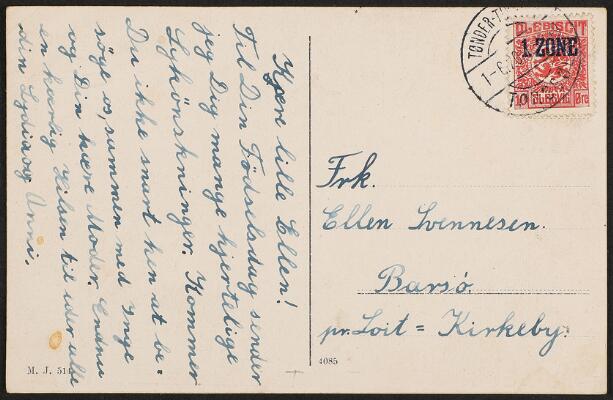 Kjære lille Ellen!
Til Din Födselsdag sender
jeg Dig mange hjertelige
Lykönskninger. Kommer
Du ikke snart hen at be=
söge os, sammen med Inge
og Din kære Moder. Endnu
en kærlig Hilsen til eder alle
din Lydia og Anni.
M. J. 51
4085
TØNDER-T
1-6
TO
PLEBISCIT
1. ZONE
SLESVIG
10 Øre
Frk.
Ellen Svennesen.
Barsö
pr. Loit = Kirkeby.